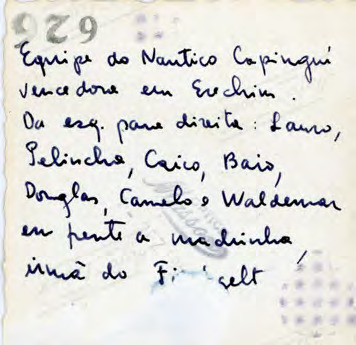 929
Equipe do Nautico Capingui
vencedora em Erechim.
Da esq. para direita: Lauro,
Pelincha, Caico, Baio,
Douglas, Camelo e Waldemar
em frente a madrinha,
irmã do